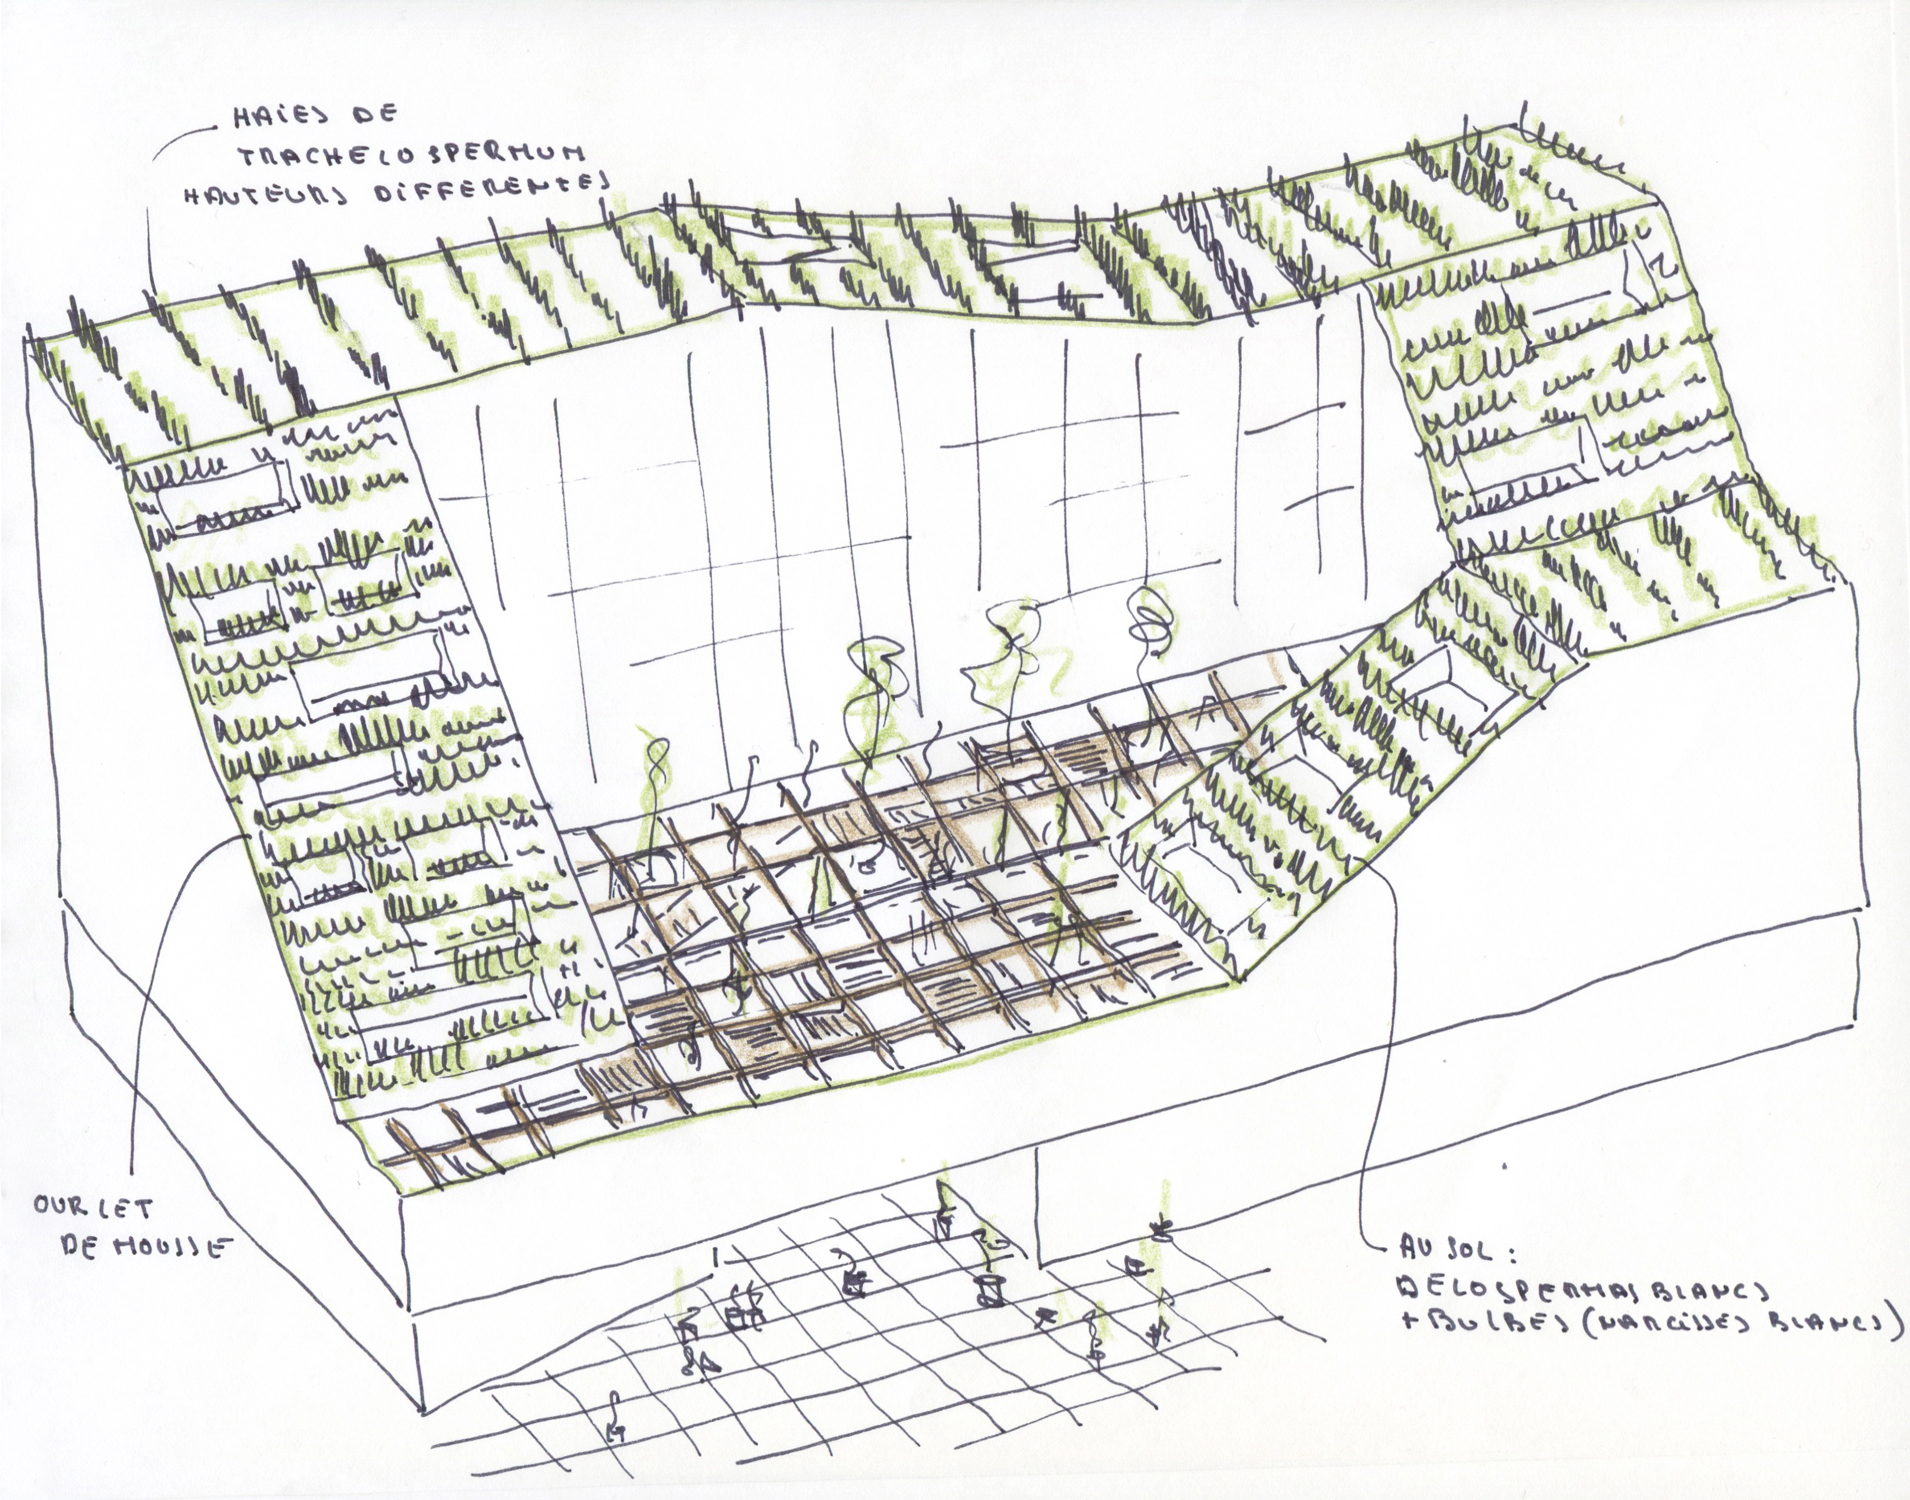 HAIES DE
TRACHELOSPERMUM
HAUTEURS DIFFERENTES
OURLET
DE MOUSSE
AU SOL :
DELOSPERMAS BLANCS
+ BULBES (NARCISSES BLANCS)